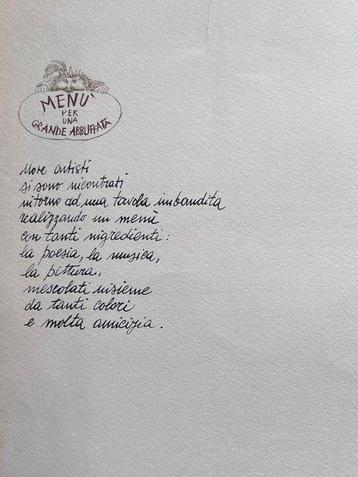 MENU'
PER
UNA
GRANDE ABBUFFATA
Nove artisti
si sono incontrati
intorno ad una tavola imbandita
realizzando un menù
con tanti ingredienti:
la poesia, la musica,
la pittura,
mescolati insieme
da tanti colori
e molta amicizia.